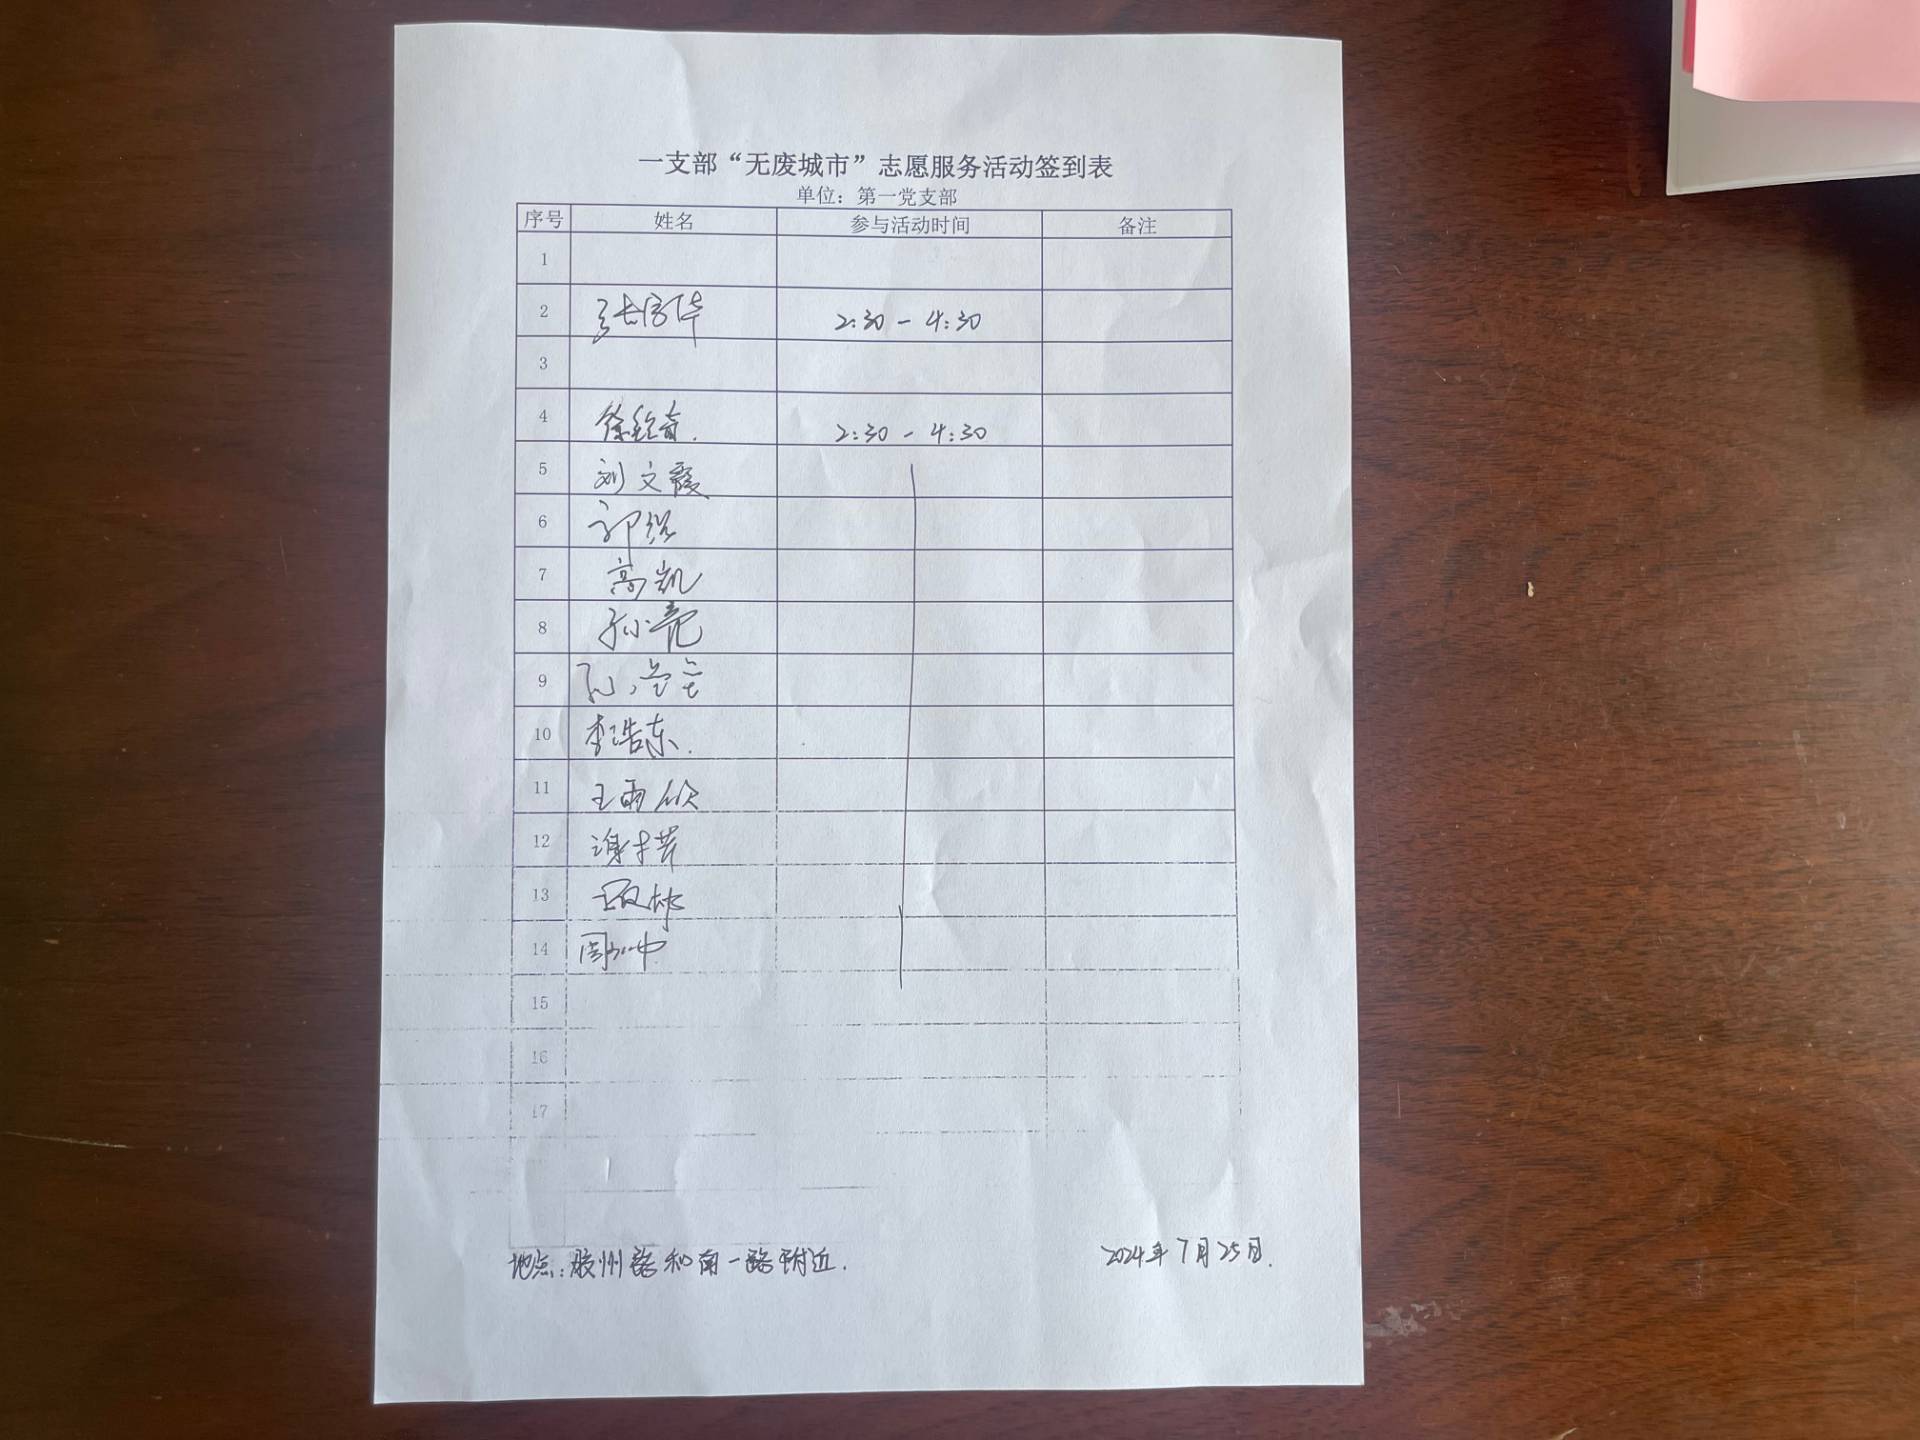 一支部“无废城市”志愿服务活动签到表
单位：第一党支部
序号 姓名 参与活动时间 备注
1
2 2:30 - 4:30
3
4 2:30 - 4:30
5 刘文霞
6 郭
7 高凯
8 孙亮
9 孙
10 李浩东.
11 王雨欣
12 谢
13
14 周
15
16
17
地点: 胶州路和南一路附近.
2024年7月25日.